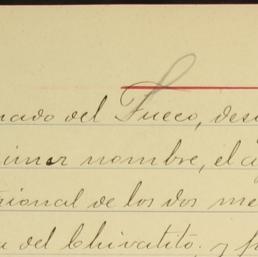 nado del Fueco, des
imer nombre, el a
cional de los dos me
del Chivatito. y f